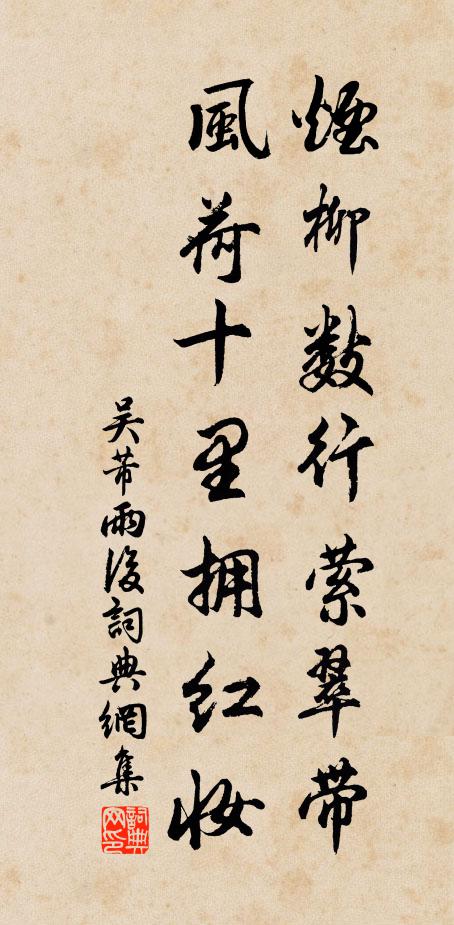 煙柳数行萦翠带
風荷十里拥红妆
吴芾雨後詞典網集
詞典网印